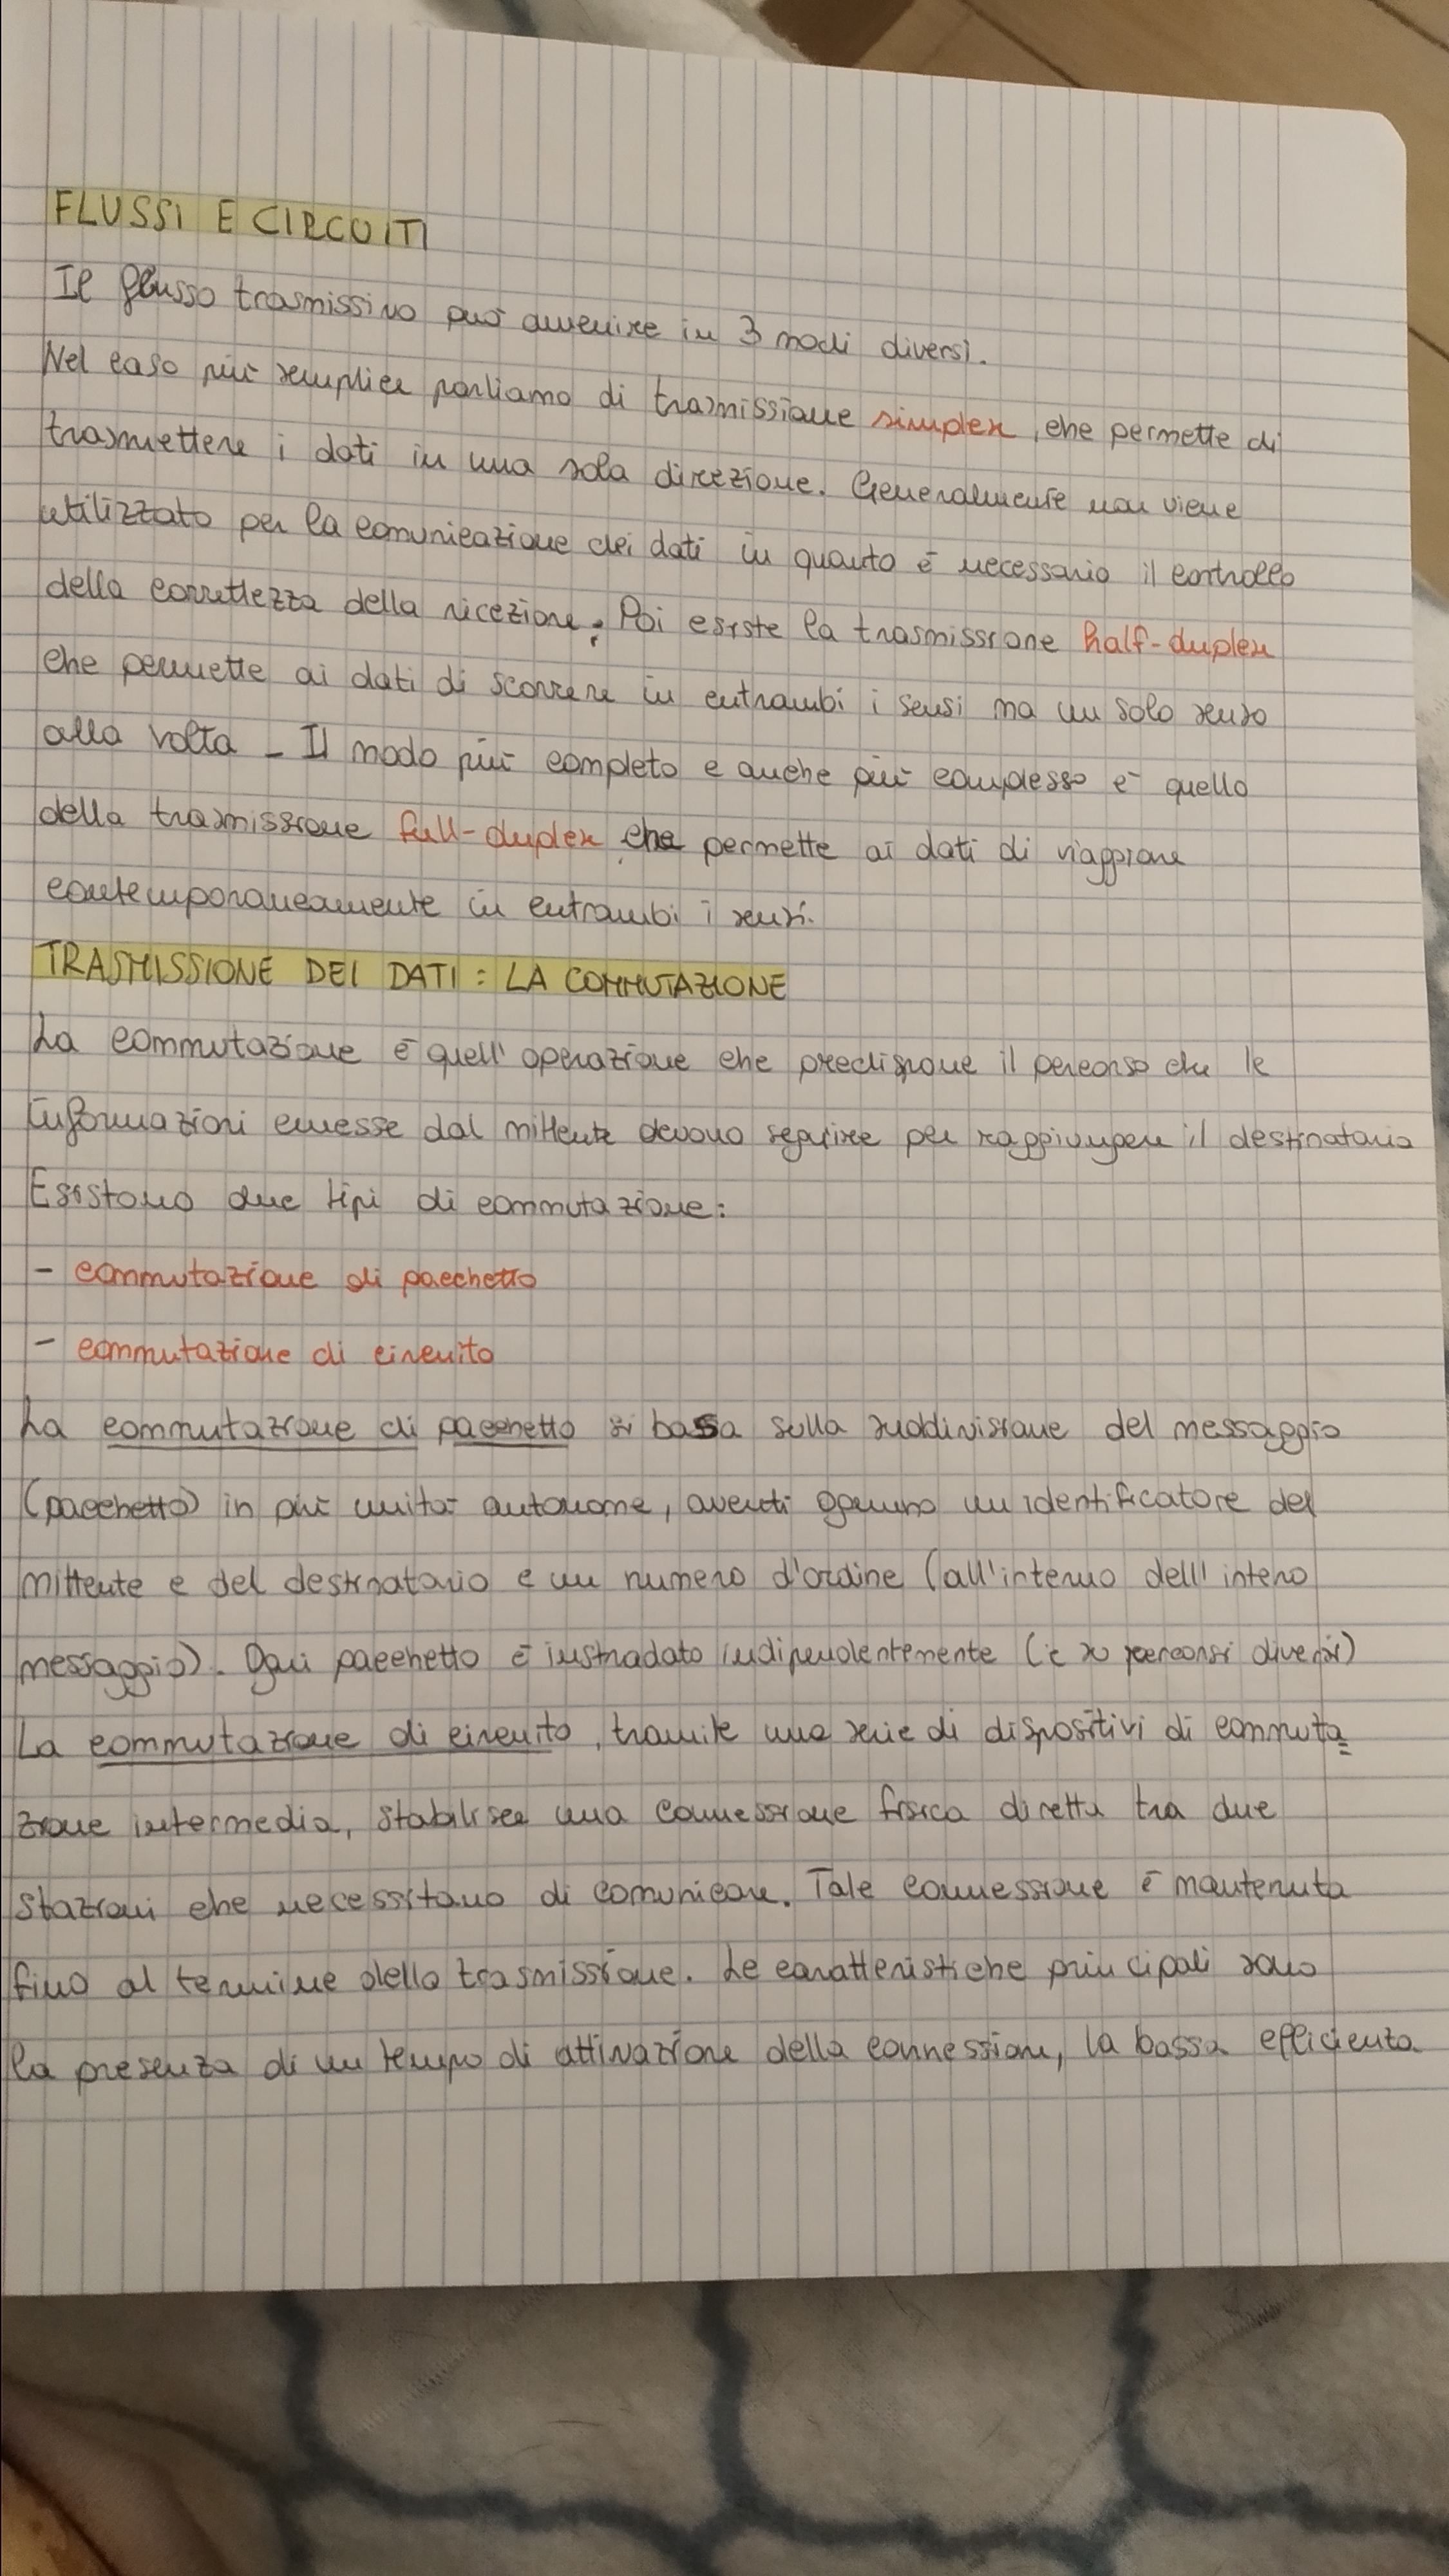 FLUSSI E CIRCUITI
Il flusso trasmissivo può avvenire in 3 modi diversi.
Nel caso più semplice parliamo di trasmissione simplex, che permette di
trasmettere i dati in una sola direzione. Generalmente non viene
utilizzato per la comunicazione dei dati in quanto è necessario il controllo
della correttezza della ricezione. Poi esiste la trasmissione half-duplex
che permette ai dati di scorrere in entrambi i sensi ma un solo senso
alla volta - Il modo più completo e anche più complesso è quello
della trasmissione full-duplex che permette ai dati di viaggiare
contemporaneamente in entrambi i sensi.
TRASMISSIONE DEI DATI: LA COMMUTAZIONE
La commutazione è quell'operazione che predispone il percorso che le
informazioni emesse dal mittente devono seguire per raggiungere il destinatario
Esistono due tipi di commutazione:
- commutazione di pacchetto
- commutazione di circuito
La commutazione di pacchetto si bassa sulla suddivisione del messaggio
(pacchetto) in più unità autonome, aventi ognuno un identificatore del
mittente e del destinatario e un numero d'ordine (all'interno dell'intero
messaggio). Ogni pacchetto è instradato indipendentemente (e su percorsi diversi)
La commutazione di circuito, tramite una serie di dispositivi di commuta=
zione intermedia, stabilisce una connessione fisica diretta tra due
stazioni che necessitano di comunicare. Tale connessione è mantenuta
fino al termine della trasmissione. Le caratteristiche principali sono
la presenza di un tempo di attivazione della connessione, la bassa efficienza